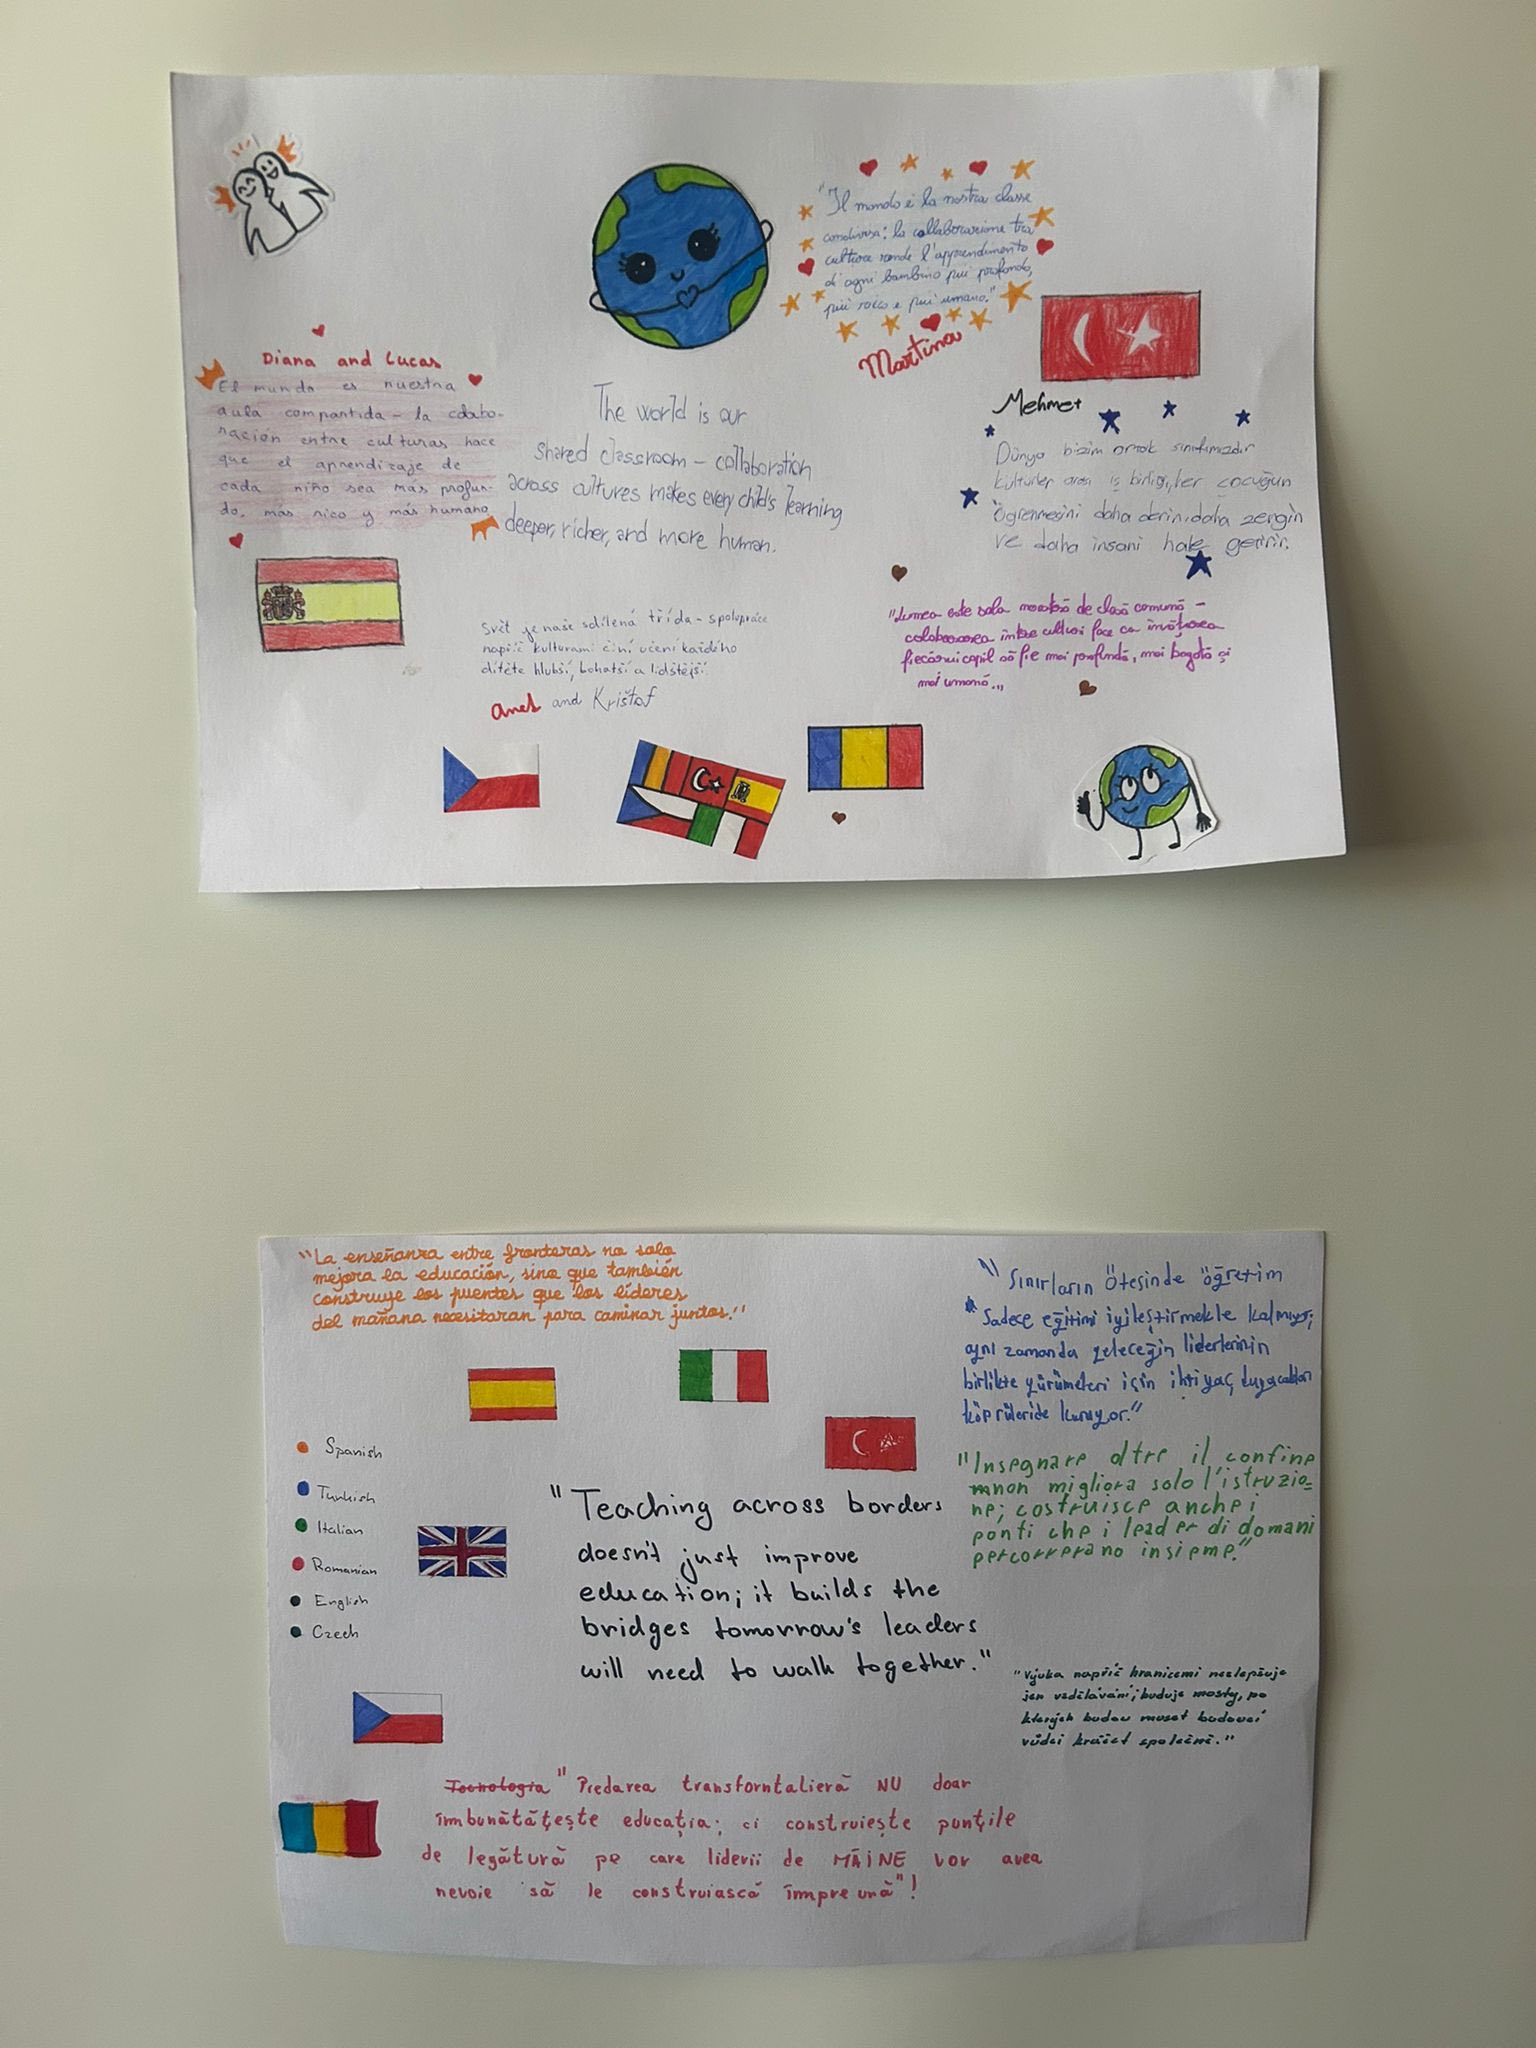 "Il mondo è la nostra classe
condivisa: la collaborazione tra
culture rende l'apprendimento
di ogni bambino più profondo,
più ricco e più umano."
Martina
Diana and Lucas
El mundo es nuestra
aula compartida - la colabo-
ración entre culturas hace
que el aprendizaje de
cada niño sea más profun-
do, más rico y más humano
The world is our
shared classroom - collaboration
across cultures makes every child's learning
deeper, richer, and more human.
Mehmet
Dünya bizim ortak sınıfımızdır
kültürler arası iş birliği, her çocuğun
Öğrenmesini daha derin, daha zengin
ve daha insani hale getirir.
Svět je naše sdílená třída - spolupráce
napříč kulturami činí učení každého
dítěte hlubší, bohatší a lidštější.
Anet and Krištof
"Lumea este sala noastră de clasă comună -
colaborarea între culturi face ca învățarea
fiecărui copil să fie mai profundă, mai bogată și
mai umană.,,
"La enseñanza entre fronteras no solo
mejora la educación, sino que también
construye los puentes que los líderes
del mañana necesitaran para caminar juntos."
"Sınırların Ötesinde öğretim
Sadece eğitimi iyileştirmekle kalmıyor;
aynı zamanda geleceğin liderlerinin
birlikte yürümeleri için ihtiyaç duyacakları
köprüleride kuruyor."
"Insegnare oltre il confine
non migliora solo l'istruzio-
ne; costruisce anche i
ponti che i leader di domani
percorrerano insieme."
Spanish
Turkish
Italian
Romanian
English
Czech
"Teaching across borders
doesn't just improve
education; it builds the
bridges tomorrow's leaders
will need to walk together."
"Výuka napříč hranicemi nezlepšuje
jen vzdělávání; buduje mosty, po
kterých budou muset budoucí
vůdci kráčet společně."
Tecnologia "Predarea transforntalieră NU doar
îmbunătățește educația; ci construiește punțile
de legătură pe care liderii de MÂINE vor avea
nevoie să le construiască împreună"!